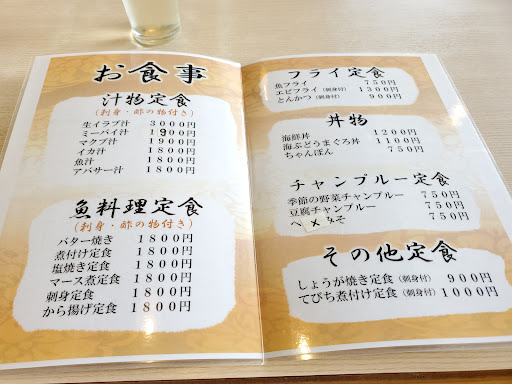 お食事
汁物定食
(刺身・酢の物付き)
生イラブ汁 3000円
ミーバイ汁 1900円
マクブ汁 1900円
イカ汁 1800円
魚汁 1800円
アバサー汁 1800円
魚料理定食
(刺身・酢の物付き)
バター焼き 1800円
煮付け定食 1800円
塩焼き定食 1800円
マース煮定食 1800円
刺身定食 1800円
から揚げ定食 1800円
フライ定食
魚フライ 750円
エビフライ(刺身付) 1300円
とんかつ(刺身付) 900円
丼物
海鮮丼 1200円
海ぶどうまぐろ丼 1100円
ちゃんぽん 750円
チャンプルー定食
季節の野菜チャンプルー 750円
豆腐チャンプルー 750円
そ 750円
その他定食
しょうが焼き定食(刺身付) 900円
てびち煮付け定食(刺身付) 1000円